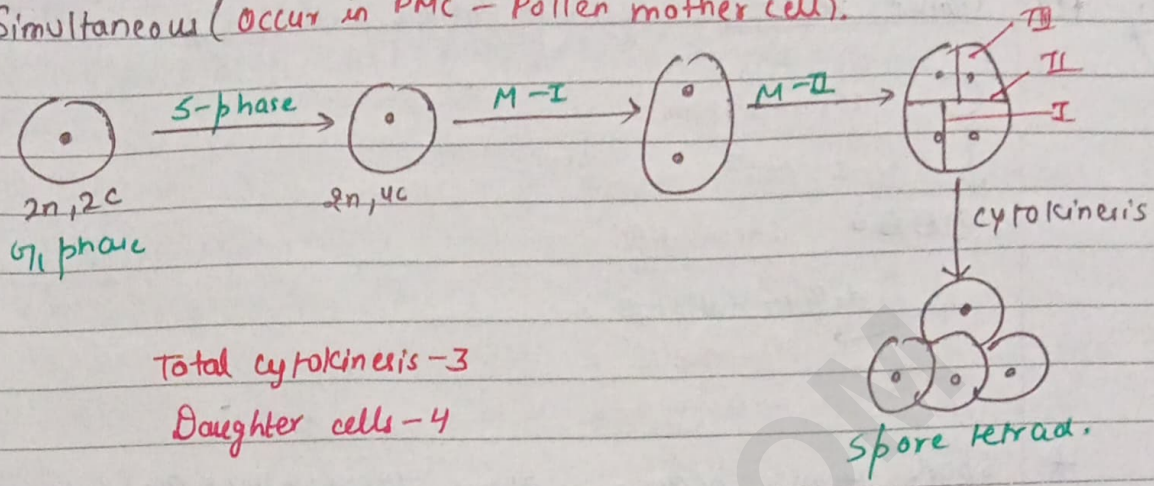 Simultaneous (occur in PMC - Pollen mother cell).
S-phase
M-I
M-II
III
II
I
2n, 2C
2n, 4C
G1 phase
cytokinesis
Total cytokinesis - 3
Daughter cells - 4
Spore tetrad.